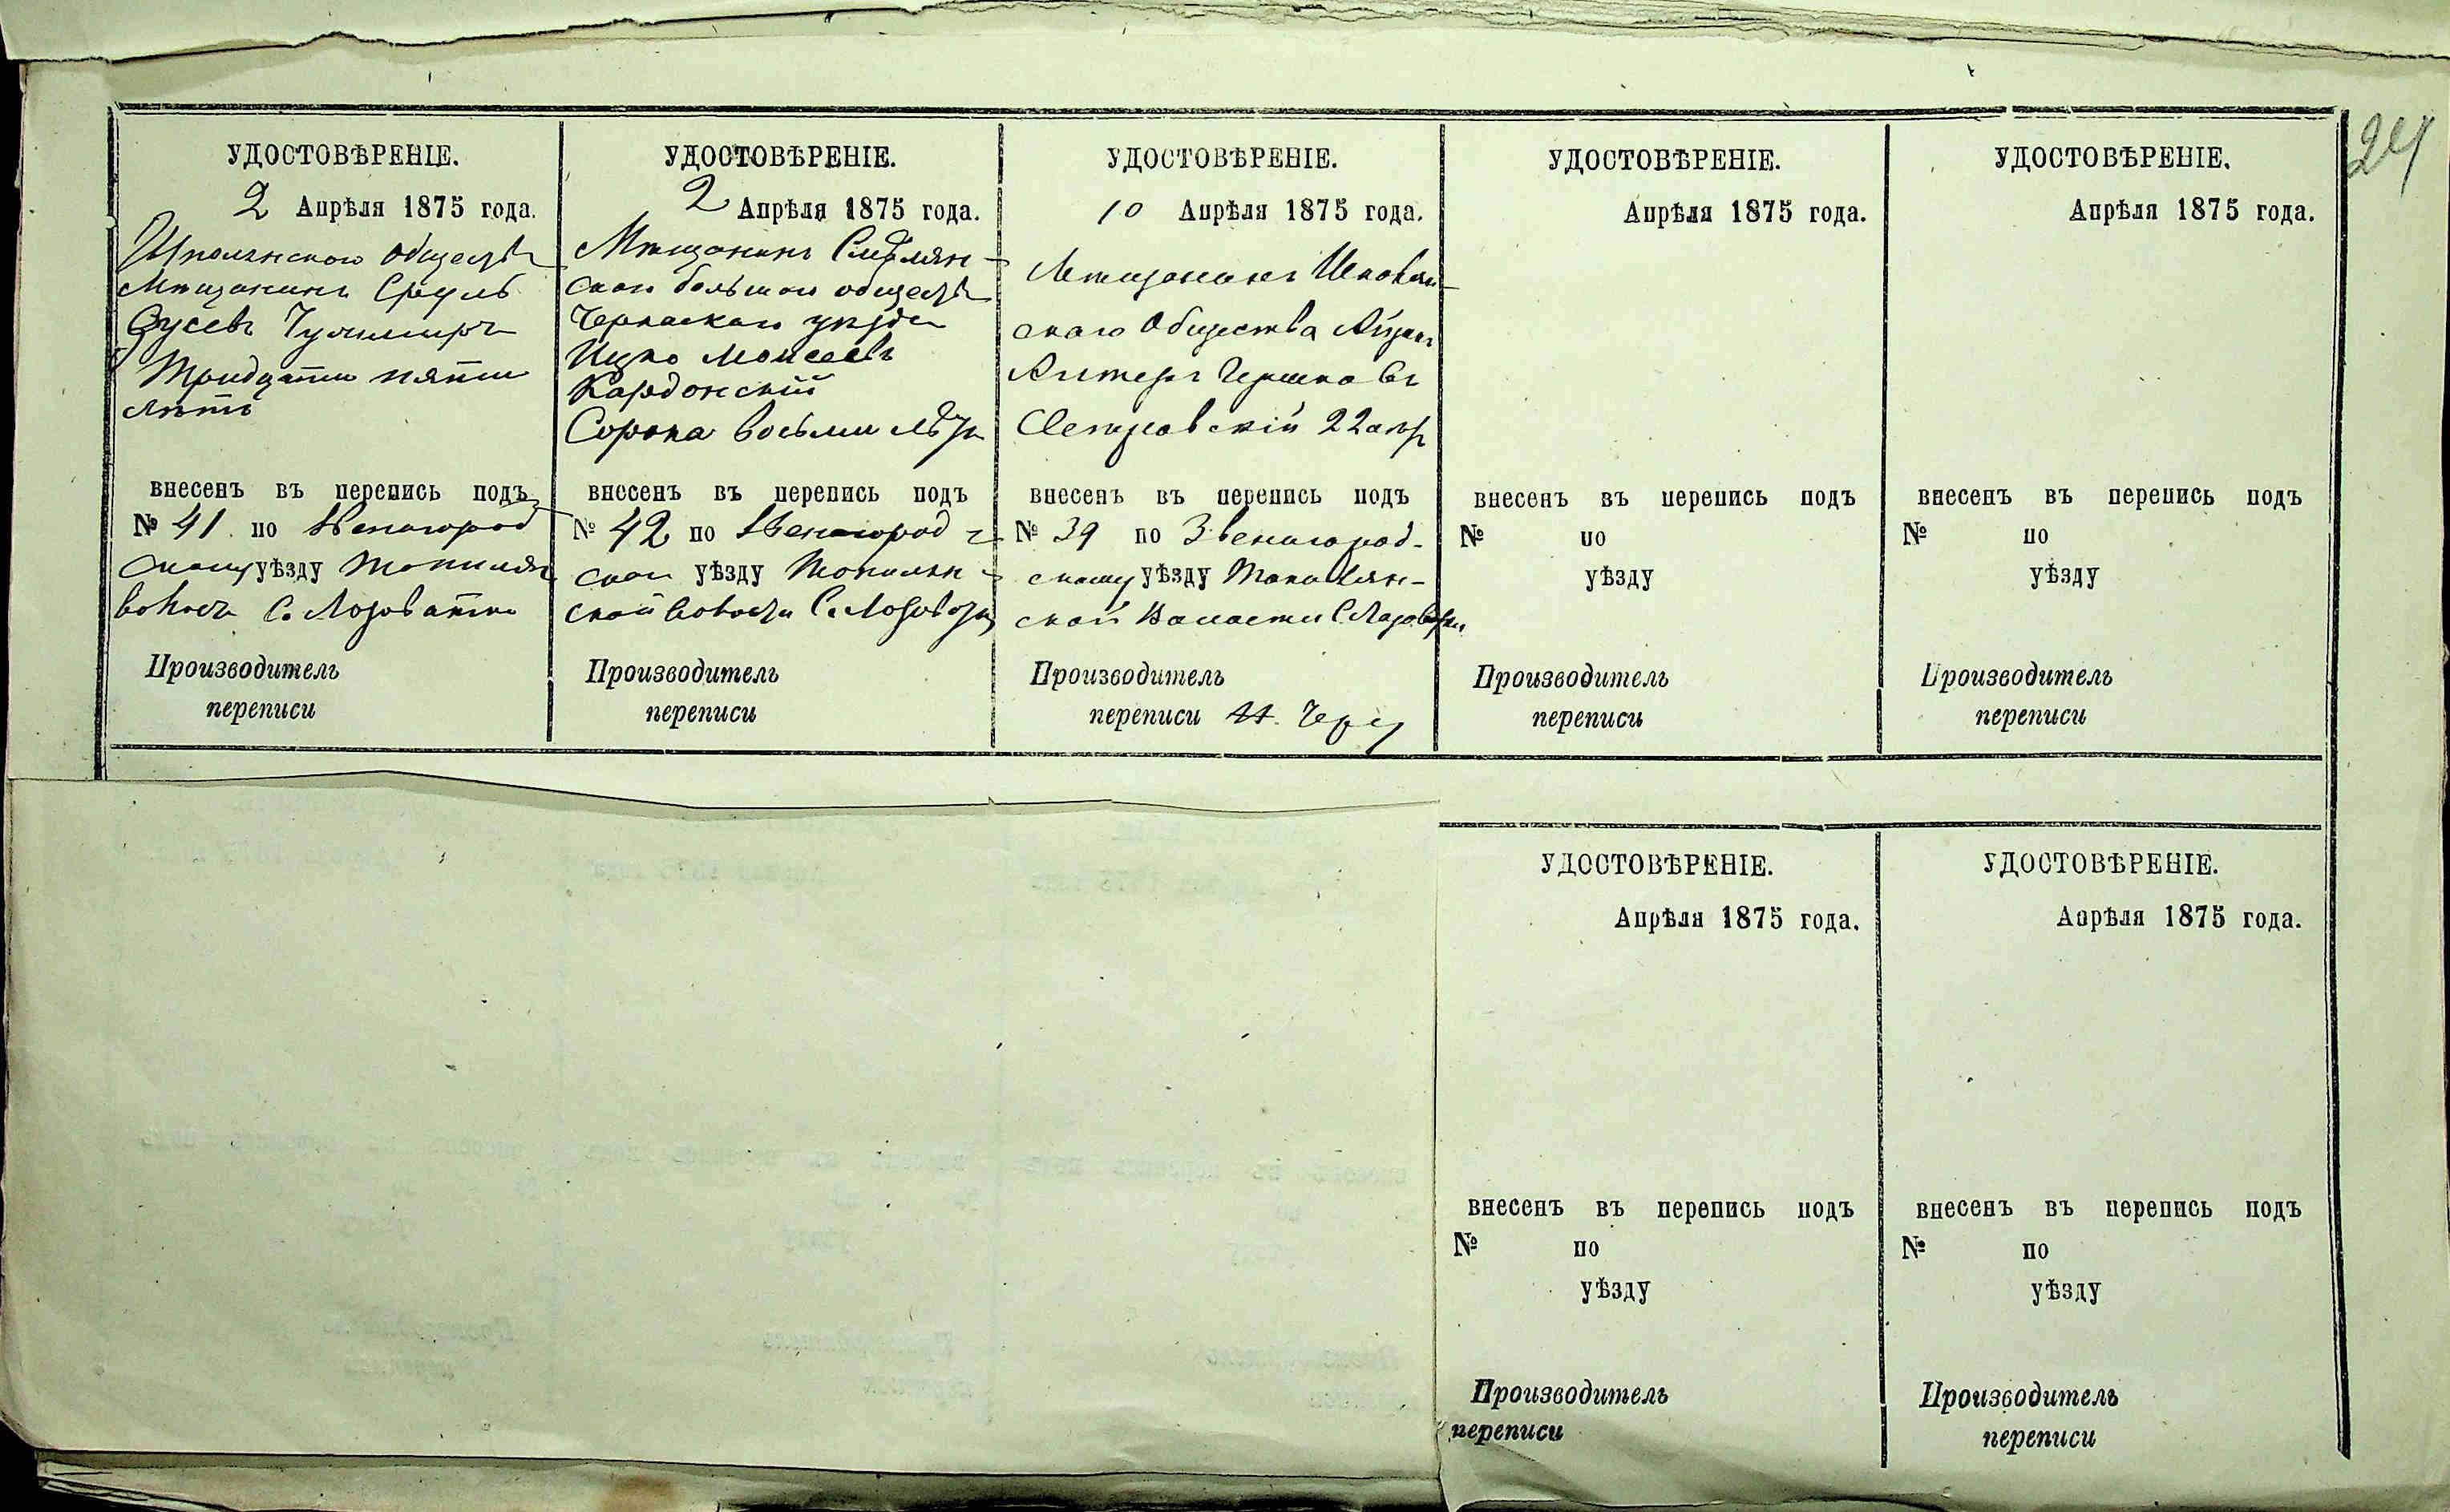 24
УДОСТОВѢРЕНІЕ.
2 Апрѣля 1875 года.
Шполянскаго
Мѣщанинъ Сруль
Зусевъ
Тридцати пяти
лѣтъ
внесенъ въ перепись подъ
№ 41 по Звенигород
скому уѣзду
С. Лозоватка
Производитель
переписи
УДОСТОВѢРЕНІЕ.
2 Апрѣля 1875 года.
Мѣщанинъ Смѣлян-
Черкаскаго уѣзда
Ицко Моисеевъ
Кардонскій
Сорока восьми лѣтъ
внесенъ въ перепись подъ
№ 42 по Звенигород-
уѣзду
ской волости С. Лозоватки
Производитель
переписи
УДОСТОВѢРЕНІЕ.
10 Апрѣля 1875 года.
Мѣщанинъ
скаго Общества
Гершковъ
22
внесенъ въ перепись подъ
№ 39 по Звенигород-
скому уѣзду
ской Волости С. Лозоватки
Производитель
переписи
УДОСТОВѢРЕНІЕ.
Апрѣля 1875 года.
внесенъ въ перепись подъ
№ по
уѣзду
Производитель
переписи
УДОСТОВѢРЕНІЕ.
Апрѣля 1875 года.
внесенъ въ перепись подъ
№ по
уѣзду
Производитель
переписи
УДОСТОВѢРЕНІЕ.
Апрѣля 1875 года.
внесенъ въ перепись подъ
№ по
уѣзду
Производитель
переписи
УДОСТОВѢРЕНІЕ.
Апрѣля 1875 года.
внесенъ въ перепись подъ
№ по
уѣзду
Производитель
переписи